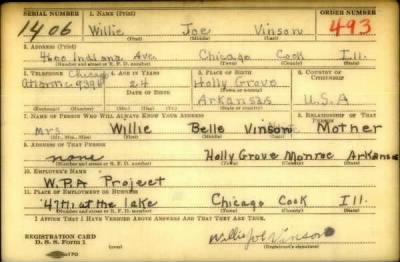 SERIAL NUMBER 1. NAME (Print) ORDER NUMBER
1406 Willie Joe Vinson 493
(First) (Middle) (Last)
2. ADDRESS (Print)
4600 Indiana Ave. Chicago Cook Ill.
(Number and street or R. F. D. number) (Town) (County) (State)
3. TELEPHONE 4. AGE IN YEARS 5. PLACE OF BIRTH 6. COUNTRY OF CITIZENSHIP
Chicago 24 Holly Grove
Atlantic 9396 DATE OF BIRTH Arkansas U.S.A
7. NAME OF PERSON WHO WILL ALWAYS KNOW YOUR ADDRESS 8. RELATIONSHIP OF THAT PERSON
Mrs Willie Belle Vinson Mother
(Mr., Mrs., Miss) (First) (Middle) (Last)
9. ADDRESS OF THAT PERSON
none Holly Grove Monroe Arkansas
(Number and street or R. F. D. number) (Town) (County) (State)
10. EMPLOYER'S NAME
W.P.A Project
11. PLACE OF EMPLOYMENT OR BUSINESS
47th at the lake Chicago Cook Ill.
(Number and street or R. F. D. number) (Town) (County) (State)
I AFFIRM THAT I HAVE VERIFIED ABOVE ANSWERS AND THAT THEY ARE TRUE.
REGISTRATION CARD
D. S. S. Form 1 Willie Joe Vinson
(Registrant's signature)